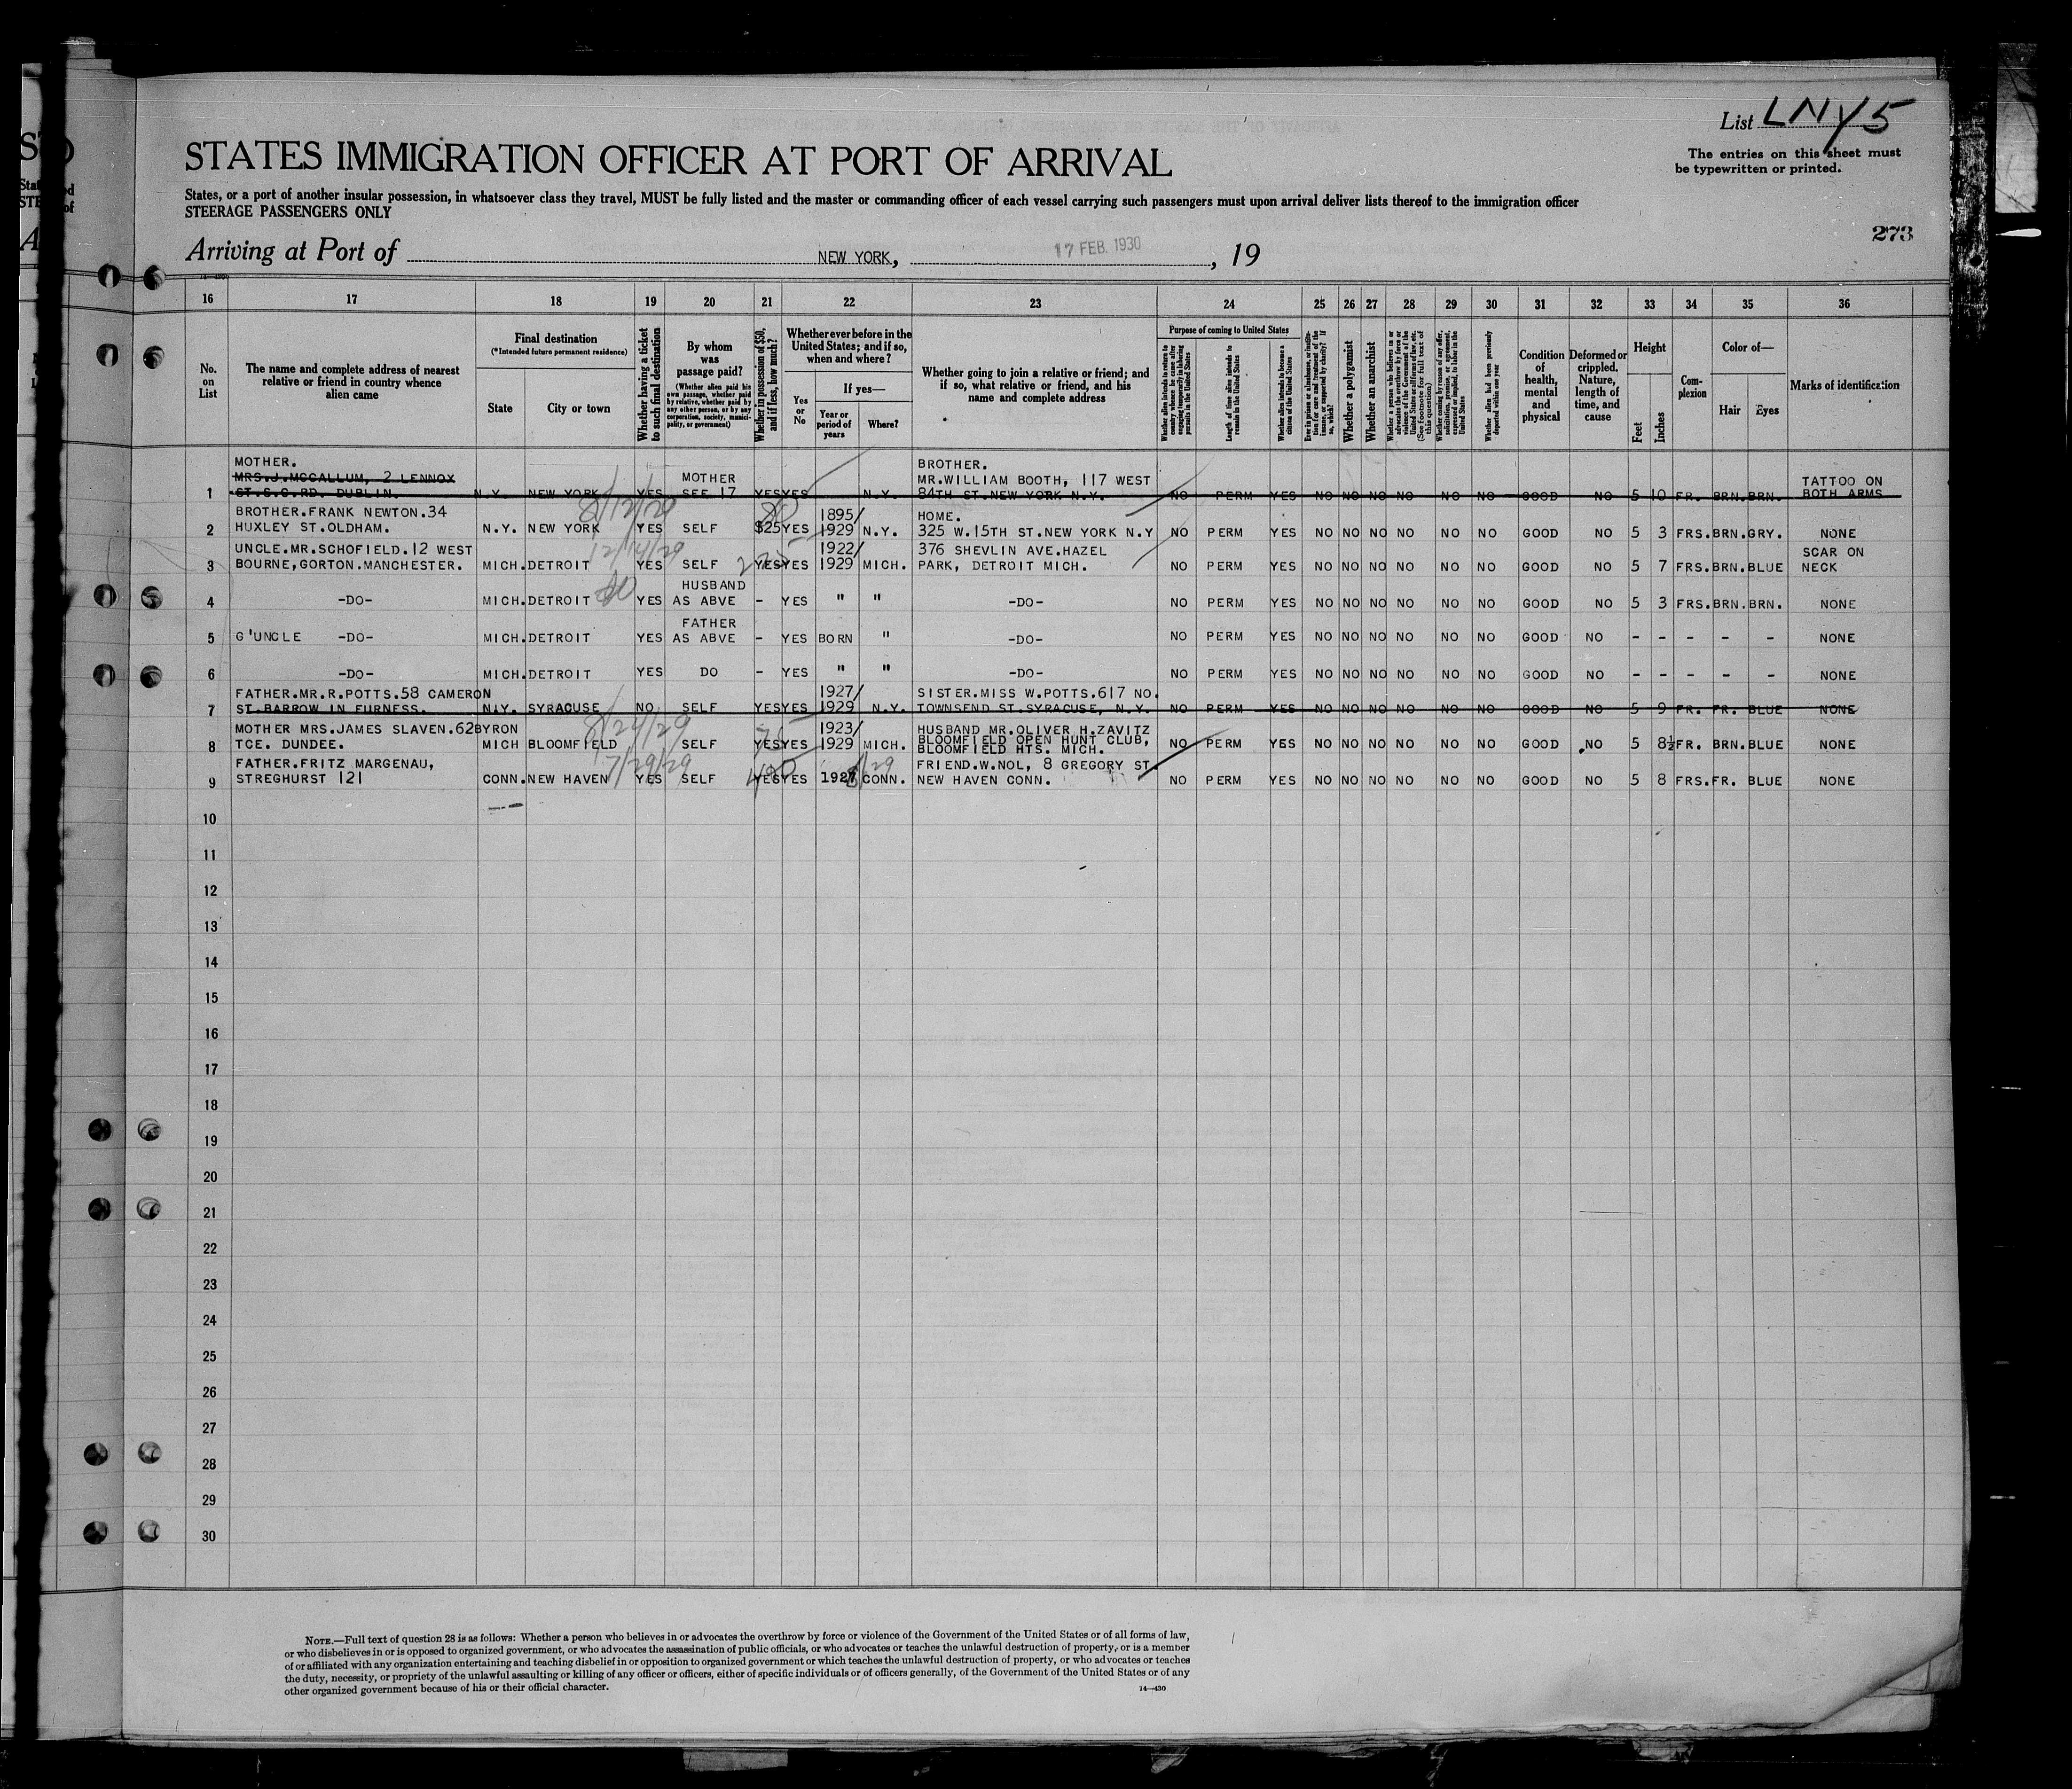 List LNY 5
The entries on this sheet must
be typewritten or printed.
STATES IMMIGRATION OFFICER AT PORT OF ARRIVAL
States, or a port of another insular possession, in whatsoever class they travel, MUST be fully listed and the master or commanding officer of each vessel carrying such passengers must upon arrival deliver lists thereof to the immigration officer
STEERAGE PASSENGERS ONLY
273
Arriving at Port of NEW YORK, 17 FEB. 1930, 19
16 17 18 19 20 21 22 23 24 25 26 27 28 29 30 31 32 33 34 35 36
No. on List
The name and complete address of nearest
relative or friend in country whence
alien came
Final destination
(*Intended future permanent residence)
State
City or town
Whether having a ticket
to such final destination
By whom
was
passage paid?
(Whether alien paid his
own passage, whether paid
by relative, whether paid by
any other person, or by any
corporation, society, munici-
pality, or government)
Whether in possession of $50,
and if less, how much?
Whether ever before in the
United States; and if so,
when and where?
Yes
or
No
If yes—
Year or
period of
years
Where?
Whether going to join a relative or friend; and
if so, what relative or friend, and his
name and complete address
Purpose of coming to United States
Length of time alien intends to
remain in the United States
Whether alien intends to become a
citizen of the United States
Whether a polygamist
Whether an anarchist
Whether alien had been previously
deported within one year
Condition
of
health,
mental
and
physical
Deformed or
crippled.
Nature,
length of
time, and
cause
Height
Feet
Inches
Com-
plexion
Color of—
Hair
Eyes
Marks of identification
MOTHER. BROTHER.
MRS.J.MCCALLUM, 2 LENNOX MOTHER MR.WILLIAM BOOTH, 117 WEST TATTOO ON
1 ST.S.C.RD. DUBLIN. N.Y. NEW YORK YES SEE 17 YES YES N.Y. 84TH ST.NEW YORK N.Y. NO PERM YES NO NO NO NO NO NO GOOD NO 5 10 FR. BRN. BRN. BOTH ARMS
BROTHER.FRANK NEWTON.34 1895/ HOME.
2 HUXLEY ST.OLDHAM. N.Y. NEW YORK YES SELF $25 YES 1929 N.Y. 325 W.15TH ST.NEW YORK N.Y NO PERM YES NO NO NO NO NO NO GOOD NO 5 3 FRS. BRN. GRY. NONE
UNCLE.MR.SCHOFIELD.12 WEST 1922/ 376 SHEVLIN AVE.HAZEL SCAR ON
3 BOURNE,GORTON.MANCHESTER. MICH. DETROIT YES SELF YES YES 1929 MICH. PARK, DETROIT MICH. NO PERM YES NO NO NO NO NO NO GOOD NO 5 7 FRS. BRN. BLUE NECK
HUSBAND
4 -DO- MICH. DETROIT YES AS ABVE - YES " " -DO- NO PERM YES NO NO NO NO NO NO GOOD NO 5 3 FRS. BRN. BRN. NONE
FATHER
5 G'UNCLE -DO- MICH. DETROIT YES AS ABVE - YES BORN " -DO- NO PERM YES NO NO NO NO NO NO GOOD NO - - - - - NONE
6 -DO- MICH. DETROIT YES DO - YES " " -DO- NO PERM YES NO NO NO NO NO NO GOOD NO - - - - - NONE
FATHER.MR.R.POTTS.58 CAMERON 1927/ SISTER.MISS W.POTTS.617 NO.
7 ST.BARROW IN FURNESS. N.Y. SYRACUSE NO SELF YES YES 1929 N.Y. TOWNSEND ST.SYRACUSE, N.Y. NO PERM YES NO NO NO NO NO NO GOOD NO 5 9 FR. FR. BLUE NONE
8/24/29
MOTHER MRS.JAMES SLAVEN.62BYRON 1923/ HUSBAND MR.OLIVER H.ZAVITZ
BLOOMFIELD OPEN HUNT CLUB,
8 TCE. DUNDEE. MICH BLOOMFIELD SELF YES YES 1929 MICH. BLOOMFIELD HTS. MICH. NO PERM YES NO NO NO NO NO NO GOOD NO 5 8½ FR. BRN. BLUE NONE
7/29/29
FATHER.FRITZ MARGENAU, FRIEND.W.NOL, 8 GREGORY ST.
9 STREGHURST 121 CONN. NEW HAVEN YES SELF YES YES 1927 8/29 CONN. NEW HAVEN CONN. NO PERM YES NO NO NO NO NO NO GOOD NO 5 8 FRS. FR. BLUE NONE
10
11
12
13
14
15
16
17
18
19
20
21
22
23
24
25
26
27
28
29
30
NOTE.—Full text of question 28 is as follows: Whether a person who believes in or advocates the overthrow by force or violence of the Government of the United States or of all forms of law,
or who disbelieves in or is opposed to organized government, or who advocates the assassination of public officials, or who advocates or teaches the unlawful destruction of property, or is a member
of or affiliated with any organization entertaining and teaching disbelief in or opposition to organized government or which teaches the unlawful destruction of property, or who advocates or teaches
the duty, necessity, or propriety of the unlawful assaulting or killing of any officer or officers, either of specific individuals or of officers generally, of the Government of the United States or of any
other organized government because of his or their official character.
14—430